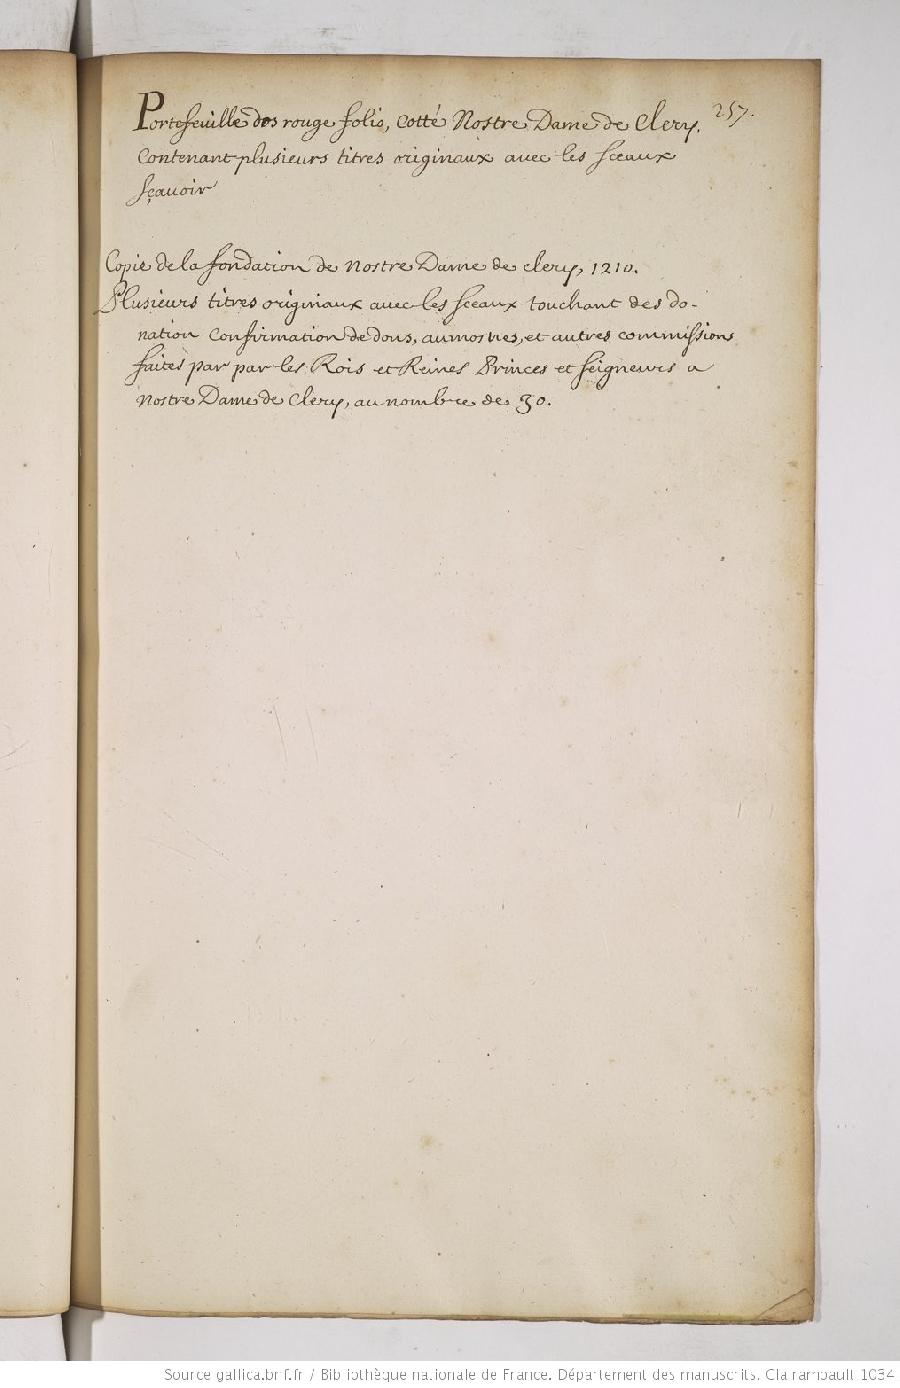 257.
Portefeuille dos rouge folio, cotté Nostre Dame de Clery.
Contenant plusieurs titres originaux avec les sceaux
sçauoir
Copie de la fondation de Nostre Dame de clery, 1210.
Plusieurs titres originaux avec les sceaux touchant des do-
nation confirmation de dons, aumosnes, et autres commissions
faites par par les Rois et Reines Princes et seigneurs a
Nostre Dame de Clery, au nombre de 30.
Source gallica.bnf.fr / Bibliothèque nationale de France. Département des manuscrits. Clairambault 1034